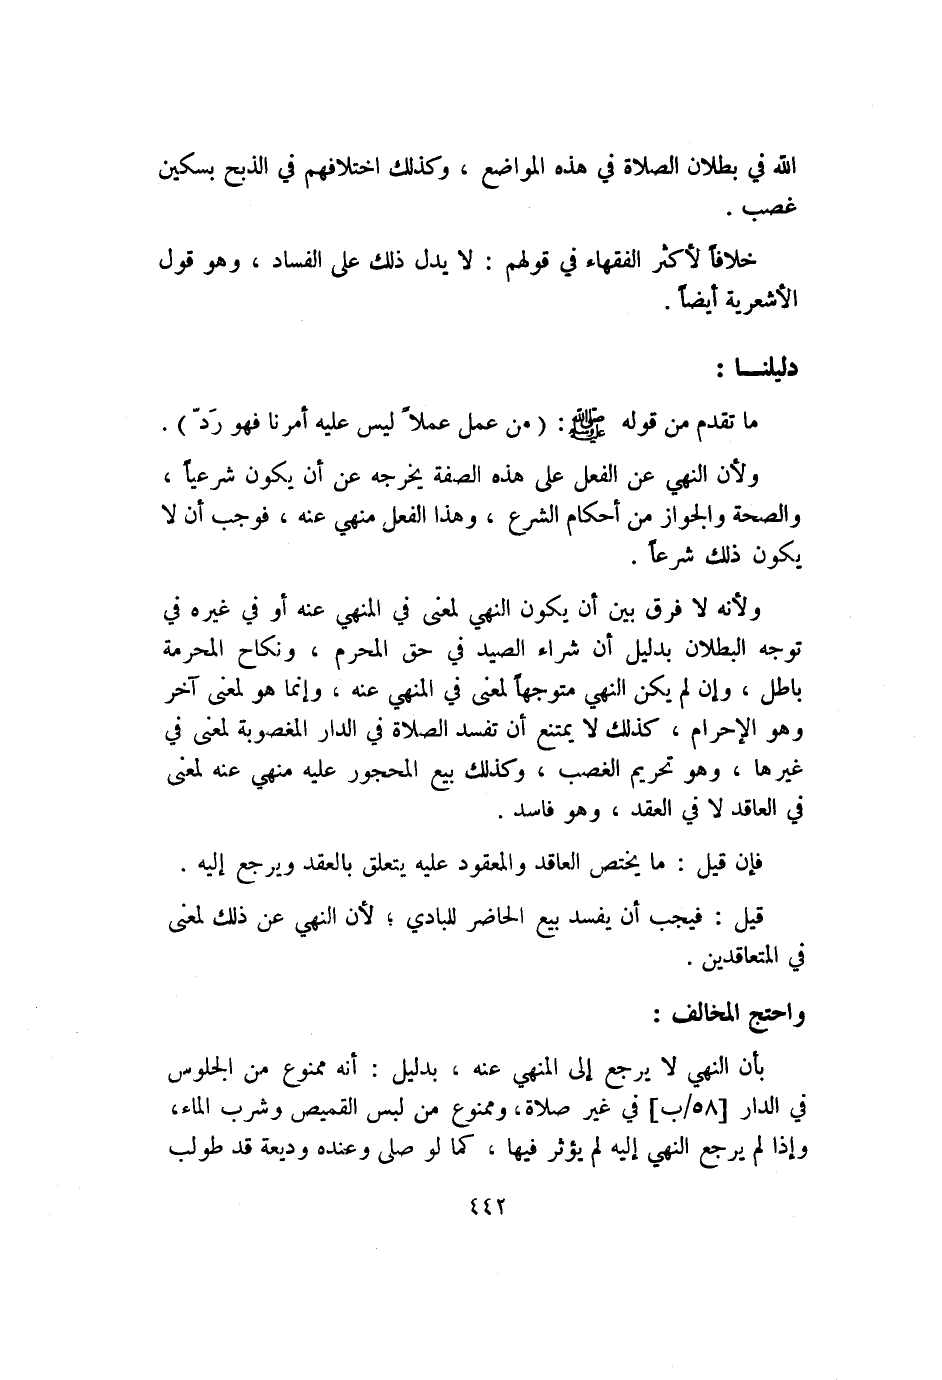 الله في بطلان الصلاة في هذه المواضع ، وكذلك اختلافهم في الذبح بسكين
غصب .
خلافاً لأكثر الفقهاء في قولهم : لا يدل ذلك على الفساد ، وهو قول
الأشعرية أيضاً .
دليلنـــا :
ما تقدم من قوله ﷺ : ( من عمل عملاً ليس عليه أمرنا فهو رَدّ ) .
ولأن النهي عن الفعل على هذه الصفة يخرجه عن أن يكون شرعياً ،
والصحة والجواز من أحكام الشرع ، وهذا الفعل منهي عنه ، فوجب أن لا
يكون ذلك شرعاً .
ولأنه لا فرق بين أن يكون النهي لمعنى في المنهي عنه أو في غيره في
توجه البطلان بدليل أن شراء الصيد في حق المحرم ، ونكاح المحرمة
باطل ، وإن لم يكن النهي متوجهاً لمعنى في المنهي عنه ، وإنما هو لمعنى آخر
وهو الإحرام ، كذلك لا يمتنع أن تفسد الصلاة في الدار المغصوبة لمعنى في
غيرها ، وهو تحريم الغصب ، وكذلك بيع المحجور عليه منهي عنه لمعنى
في العاقد لا في العقد ، وهو فاسد .
فإن قيل : ما يختص العاقد والمعقود عليه يتعلق بالعقد ويرجع إليه .
قيل : فيجب أن يفسد بيع الحاضر للبادي ؛ لأن النهي عن ذلك لمعنى
في المتعاقدين .
واحتج المخالف :
بأن النهي لا يرجع إلى المنهي عنه ، بدليل : أنه ممنوع من الجلوس
في الدار [٥٨/ب] في غير صلاة، وممنوع من لبس القميص وشرب الماء،
وإذا لم يرجع النهي إليه لم يؤثر فيها ، كما لو صلى وعنده وديعة قد طولب
٤٤٢